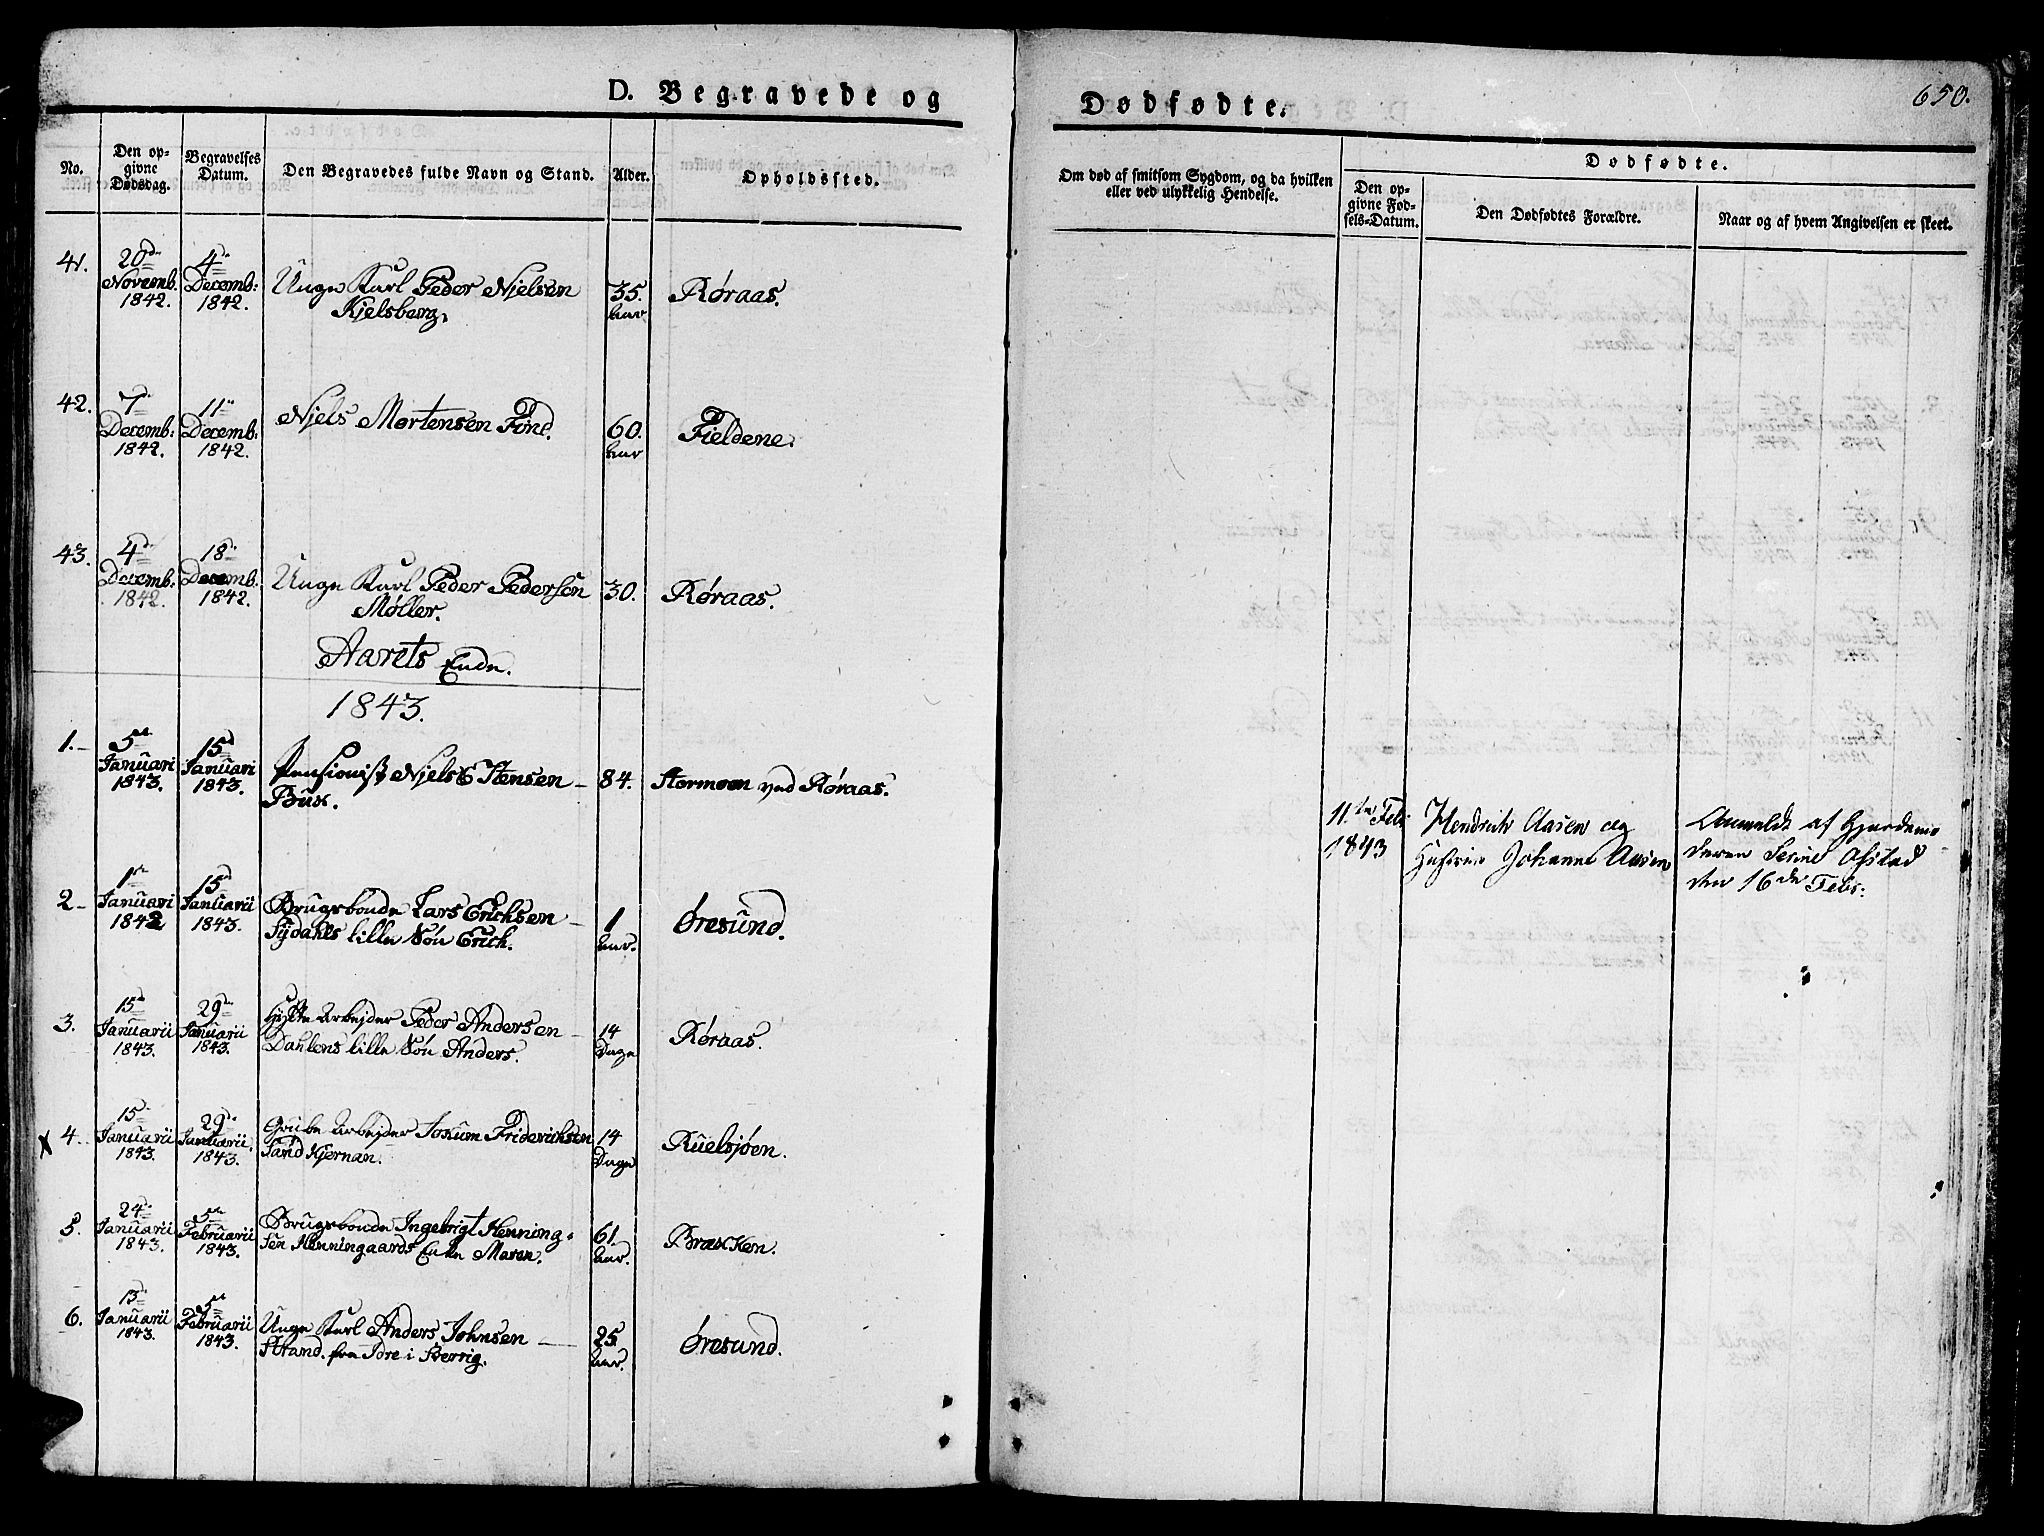 D. Begravede og
No.
Den op-
givne
Dødsdag.
Begravelses
Datum.
Den Begravedes fulde Navn og Stand.
Alder.
Opholdssted.
41.
20de
Novemb.
1842.
4de
Decemb:
1842.
Unge Karl Peder Nielsen
Kjelsberg.
35.
Aar
Røraas.
42.
7de
Decemb:
1842.
11te
Decemb:
1842.
Niels Mortensen Tønd.
60.
Aar
Fieldene.
43.
4de
Decemb.
1842.
18de
Decemb:
1842.
Unge Karl Peder Pedersen
Møller.
30.
Røraas.
Aarets Ende.
1843.
1.
5te
Januari
1843.
15de
Januari
1843.
Pensionist Niels Stensen
Bux.
84.
Stormoen ved Røraas.
2
1ste
Januari
1842
15de
Januarii
1843.
Brugsbonde Lars Erichsen
Sydahls lille Søn Erich.
1
Aar.
Øresund.
3.
15de
Januarii
1843.
29de
Januarii
1843.
Hytte Arbejder Peder Andersen
Dahlens lille Søn Anders.
14
Dage
Røraas.
x 4.
15de
Januarii
1843.
29de
Januarii
1843.
Grube Arbejder Jokum Friderichsen
Sand Kjernan.
14
Dage
Ruelsjøen.
5.
24de
Januarii
1843.
5te
Februarii
1843.
Brugsbonde Ingebrigt Henning-
sen Henningaards Enke Maren.
61.
Aar.
Bræcken.
6.
13de
Januarii
1843.
5te
Februarii
1843.
Unge Karl Anders Johnsen
Strand. fra Idre i Sverrig.
25
Aar.
Øresund.
Dødfødte.
650.
Om død af smitsom Sygdom, og da hvilken
eller ved ulykkelig Hendelse.
Dødfødte.
Den op-
givne Fød-
sels-Datum.
Den Dødfødtes Forældre.
Naar og af hvem Angivelsen er skeet.
11te Feb:
1843
Hendrich Aasen og
Hustrue Johanne Aasen
Anmeldt af Gjordemo-
deren Serine Afstad
den 16de Feb: